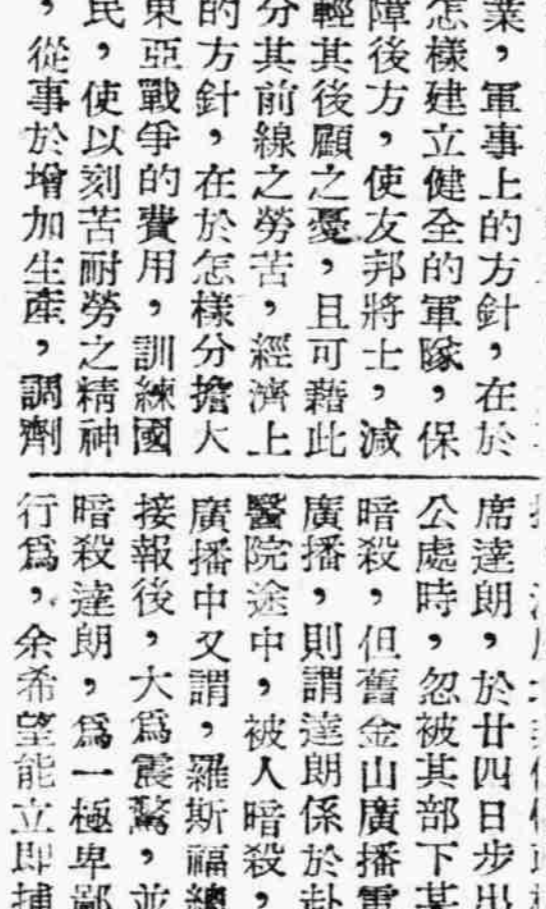 業，軍事上的方針，在於
怎樣建立健全的軍隊，保
障後方，使友邦將士，減
輕其後顧之憂，且可藉此
分其前線之勞苦，經濟上
的方針，在於怎樣分擔大
東亞戰爭的費用，訓練國
民，使以刻苦耐勞之精神
，從事於增加生產，調劑
席達朗，於廿四日步出
公處時，忽被其部下某
暗殺，但舊金山廣播電
廣播，則謂達朗係於赴
醫院途中，被人暗殺，
廣播中又謂，羅斯福總
接報後，大爲震驚，並
暗殺達朗，爲一極卑鄙
行爲，余希望能立即捕